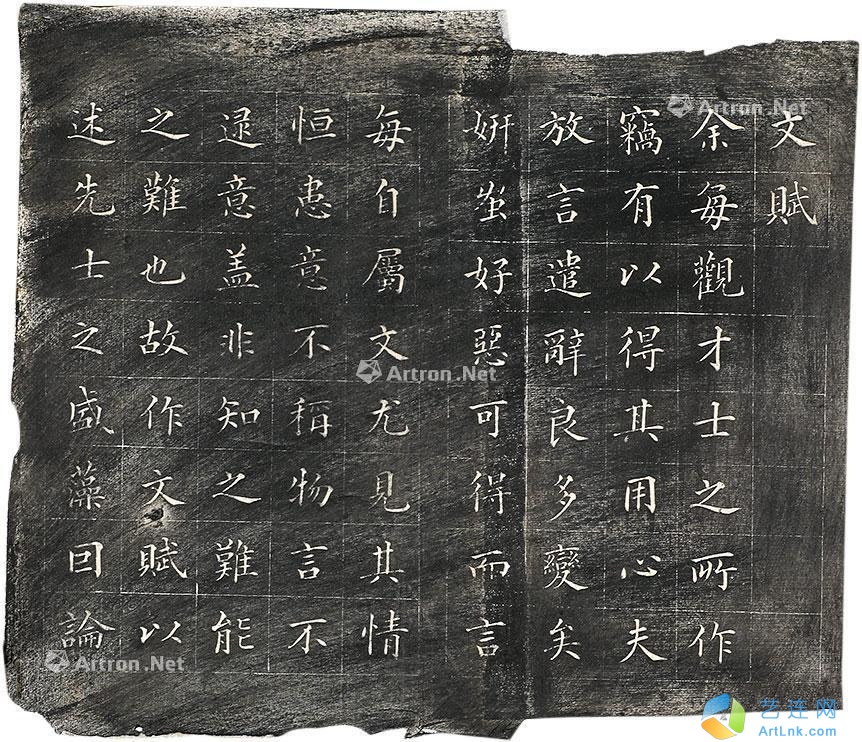 文賦
余每觀才士之所作
竊有以得其用心夫
放言遣辭良多變矣
妍蚩好惡可得而言
每自屬文尤見其情
恒患意不稱物言不
逮意盖非知之難能
之難也故作文賦以
述先士之盛藻囙論
Artron.Net
Artron.Net
Artron.Net
艺连网
ArtLnk.com